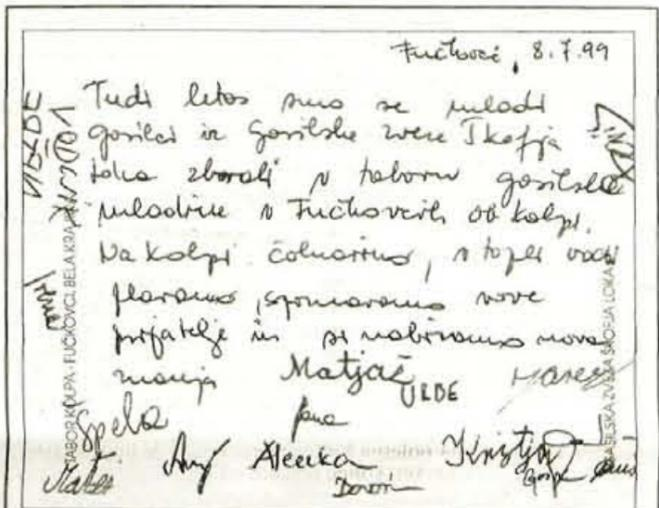 Fučkovci, 8.7.99
Tudi letos smo se mladi
gasilci iz Gasilske zveze Škofja
Loka zbrali v taboru gasilske
mladine v Fučkovcih ob Kolpi.
Na Kolpi čolnarimo, v topli vodi
plavamo, spoznavamo nove
prijatelje in si nabiramo nova
znanja
Matjaž
URBE
Špela
Jana
Matej
Alenka
Kristja
TABOR KOLPA - FUČKOVCI, BELA KRAJINA
GASILSKA ZVEZA ŠKOFJA LOKA
VODNIK